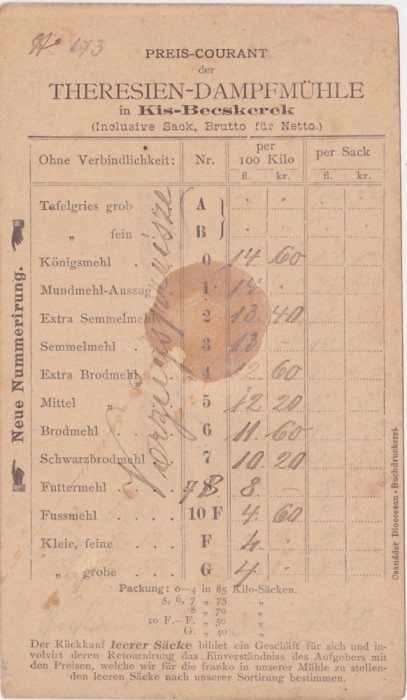 No 173
PREIS-COURANT
der
THERESIEN-DAMPFMÜHLE
in Kis-Becskerek
(Inclusive Sack, Brutto für Netto.)
Ohne Verbindlichkeit: Nr. per 100 Kilo per Sack
fl. kr. fl. kr.
Tafelgries grob A
„ fein B
Königsmehl 0 14 60
Mundmehl-Auszug 1 14 -
Extra Semmelmehl 2 13 40
Semmelmehl 3 13 -
Extra Brodmehl 4 12 60
Mittel „ 5 12 20
Brodmehl 6 11 60
Schwarzbrodmehl 7 10 20
Futtermehl 8 8 -
Fussmehl 10 F 4 60
Kleie, feine F 4 -
„ grobe G 4 -
Neue Nummerirung.
Packung: 0—4 in 85 Kilo-Säcken.
5, 6, 7 „ 75 „
8 „ 70 „
10 F.—F. „ 50 „
G. „ 40 „
Der Rückkauf leerer Säcke bildet ein Geschäft für sich und in-
volvirt deren Retournirung das Einverständniss des Aufgebers mit
den Preisen, welche wir für die franko in unserer Mühle zu stellen-
den leeren Säcke nach unserer Sortirung bestimmen.
Csanáder Diocesan-Buchdruckerei